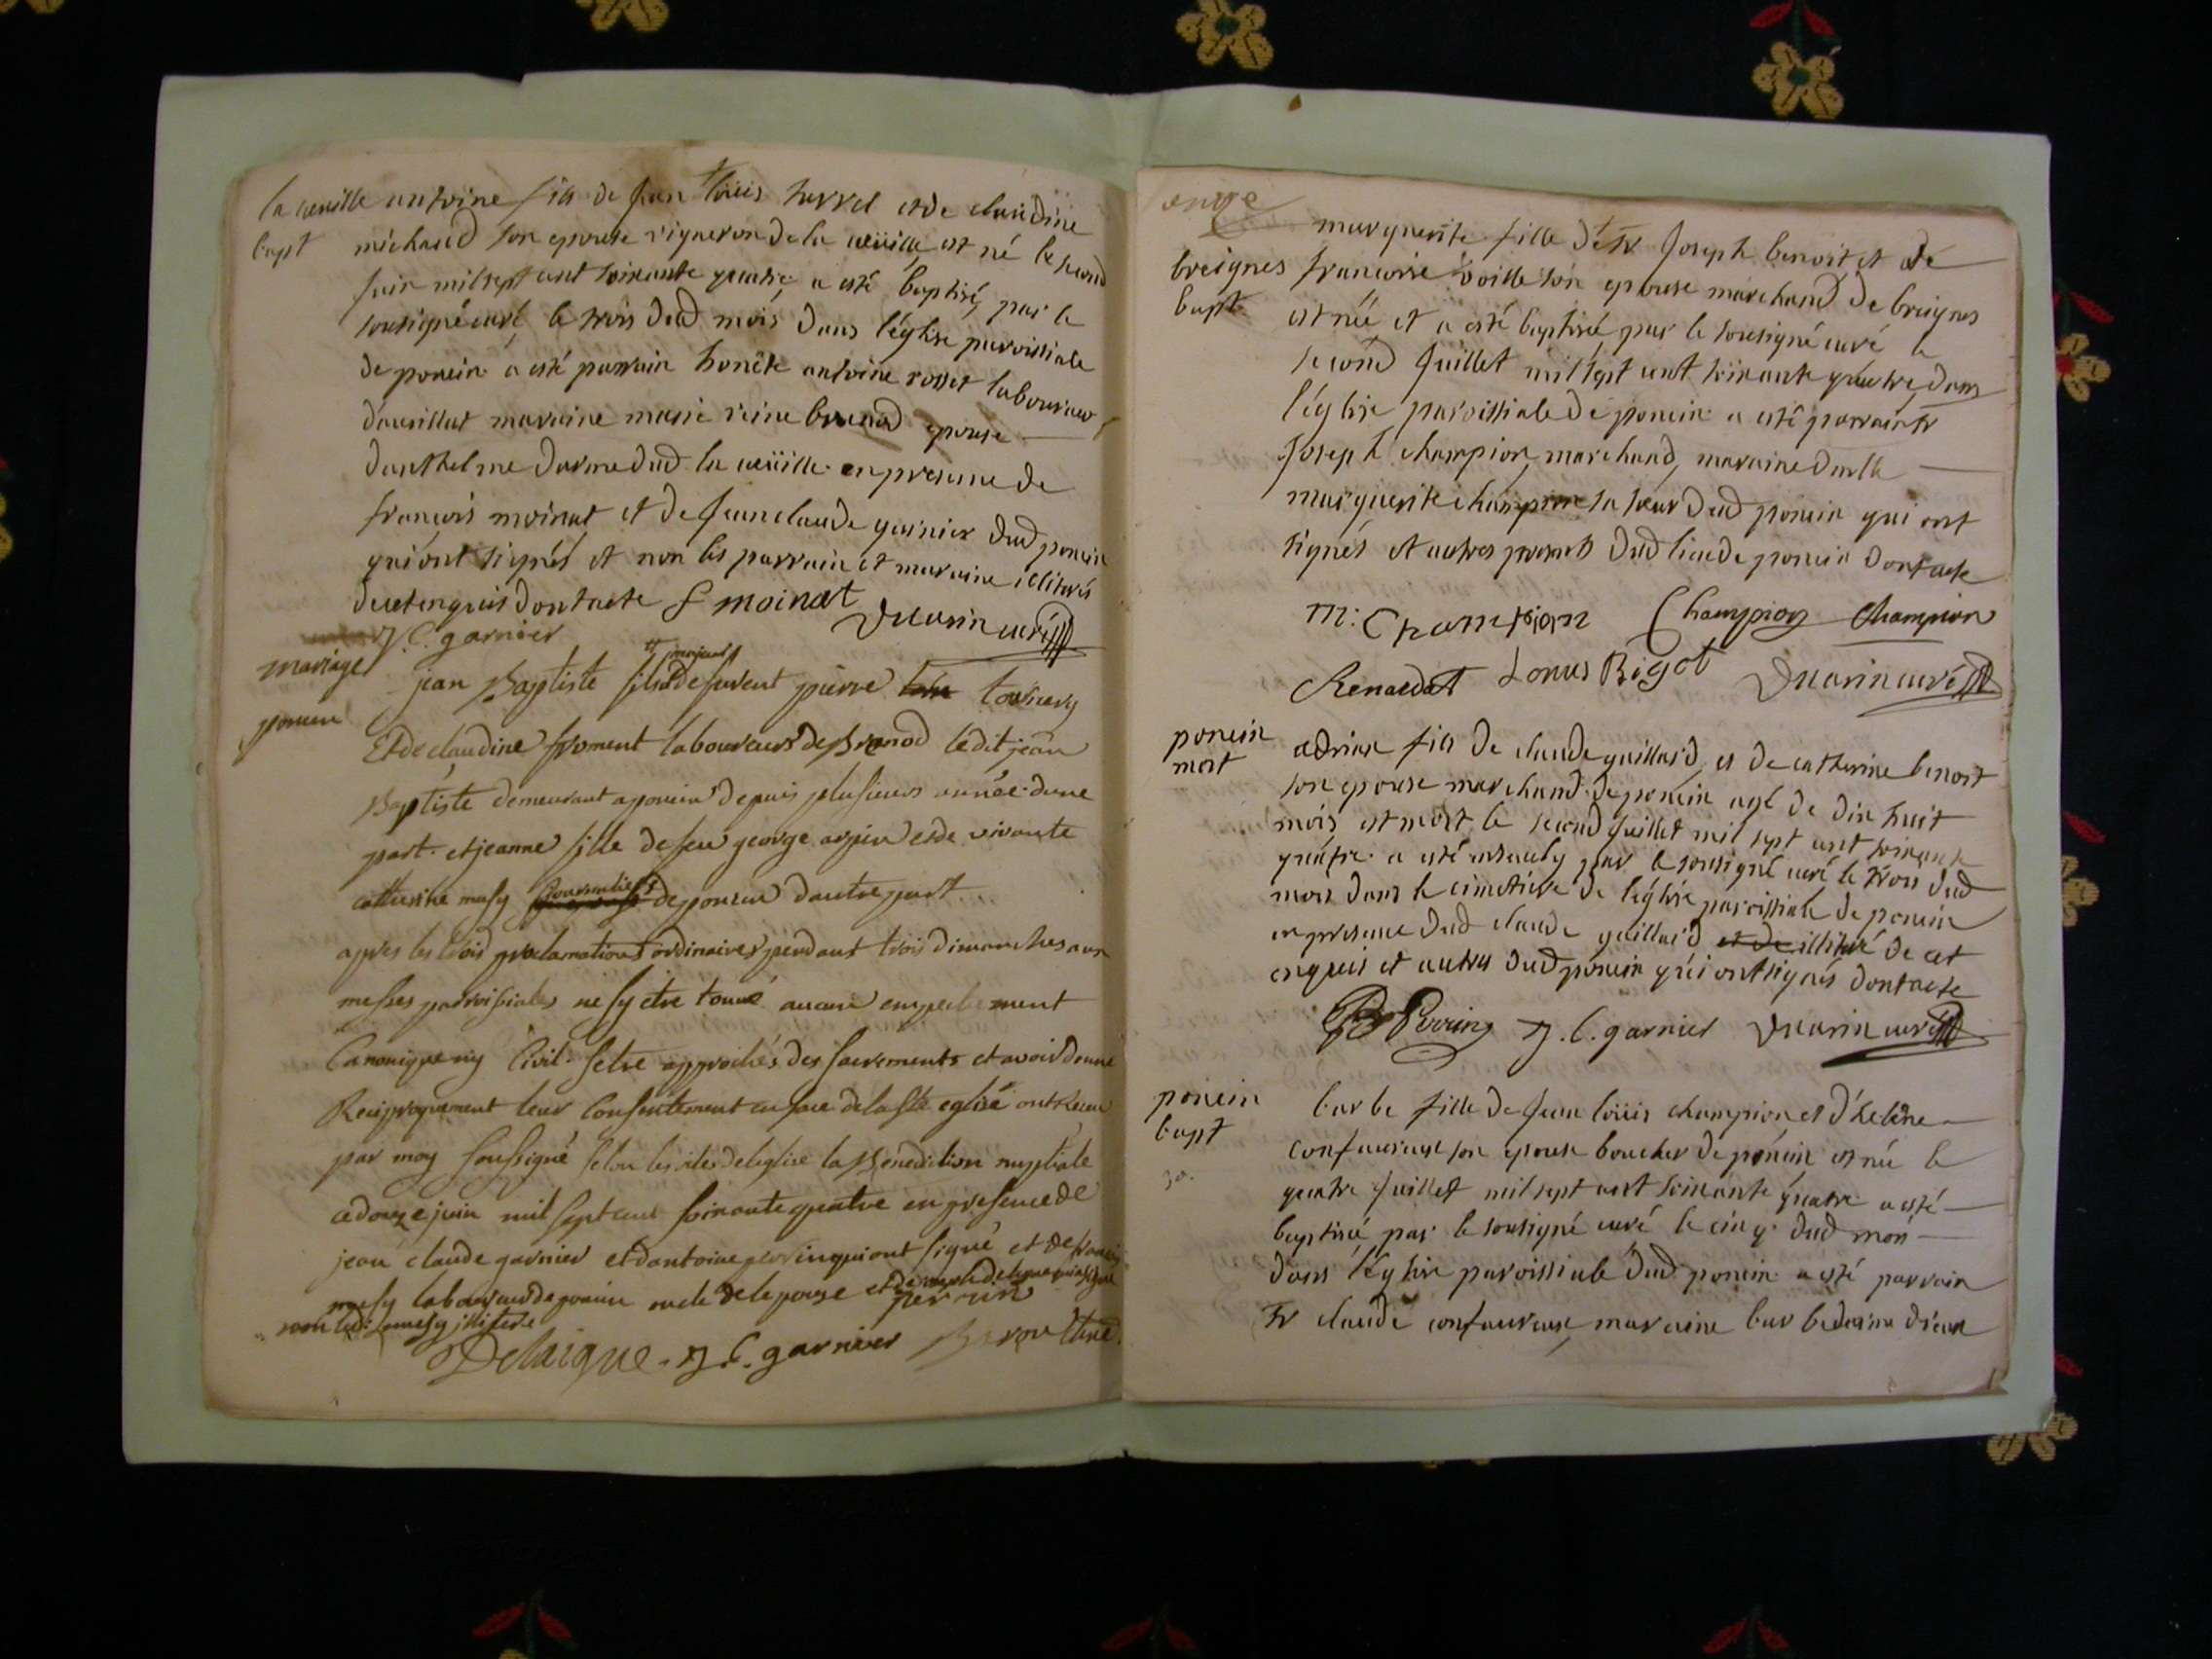 la cueille antoine fils de Jean loüis surrel et de claudine
bapt michaud son epouse vigneron de la cuëille est né le second
juin mil sept cent soixante quatre a esté baptisé par le
sousigné curé le trois dud mois dans l'église paroissiale
de poncin a esté parrain honête antoine rosset laboureur
d'avrillat maraine marie reine brunod epouse
d'anthelme darme dud la cuëille en presence de
françois moinat et de Jean claude garnier dud poncin
qui ont signés et non les parrain et maraine illiturés
de cet enquis dont acte f moinat
J. C. garnier Duarin curé
mariage
poncin
jean Baptiste fils majeur de furent pierre tournery
Et de claudine froment laboureurs de Brenod ledit jean
Baptiste demeurant a poncin depuis plusieurs année dune
part. et jeanne fille de feu george arpin et de vivante
catherine masy de poncin dautre part
apres les trois proclamations ordinaires pendant trois dimanches aux
messes parroissiales ne sy etre touvé aucun empechement
Canonique ny Civil. setre approchés des sacrements et avoir donné
Reciproquement leur Consentement en face de la ste eglise ont Recu
par moy soussigné selon les rites de leglise la Benediction nuptiale
ce douze juin mil sept cent soixante quatre en presence de
jean claude garnier et dantoine perrin qui ont signé et de francois
masy laboureur de poncin oncle de lepouse
non led: masy illiteré perrin
Delaigue. J. C. garnier
onze
marguerite fille de sr Joseph benoit et de
breignes françoise voille son epouse marchand de breignes
bapt est née et a esté baptisée par le sousigné curé le
second Juillet mil sept cent soixante quatre, dans
l'église paroissiale de poncin a esté parrain sr
Joseph champion marchand, maraine dlle
marguerite champion sa sœur dud poncin qui ont
signés et autres presents dud lieu de poncin dont acte
M: Champion Champion Champion
Renaudat Lonus Bigot Duarin curé
poncin
mort
adrian fils de claude guillard et de catherine benoit
son epouse marchand de poncin agé de dix huit
mois est mort le second Juillet mil sept cent soixante
quatre a esté enseuely par le sousigné curé le trois dud
mois dans le cimetière de l'église paroissiale de poncin
en presence dud claude guillard et de illituré de cet
enquis et autres dud poncin qui ont signés dont acte
Perrin J. C. garnier Duarin curé
poncin
bapt
barbe fille de Jean loüis champion et d'helène
confavreux son epouse boucher de poncin est née le
quatre Juillet mil sept cent soixante quatre a esté
baptisée par le sousigné curé le cinq dud mois
dans l'église paroissiale dud poncin a esté parrain
sr claude confavreux, maraine barbe